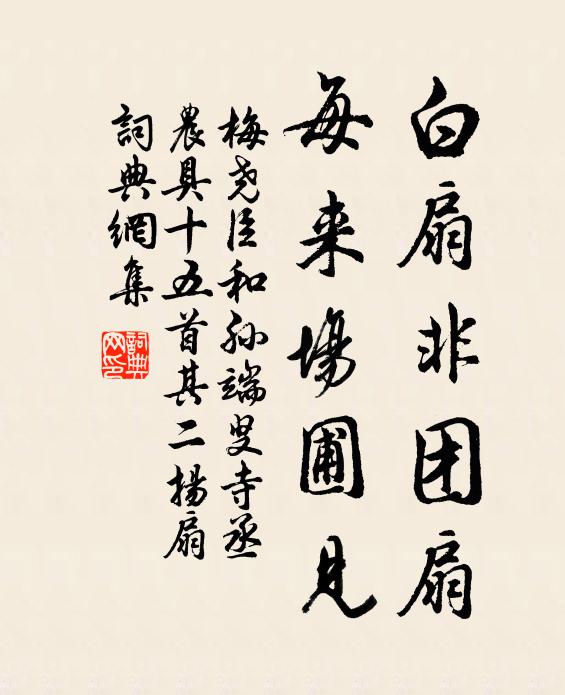 白扇非团扇
每来場圃見
梅尧臣和孙端叟寺丞
農具十五首其二揚扇
詞典網集
詞典网印